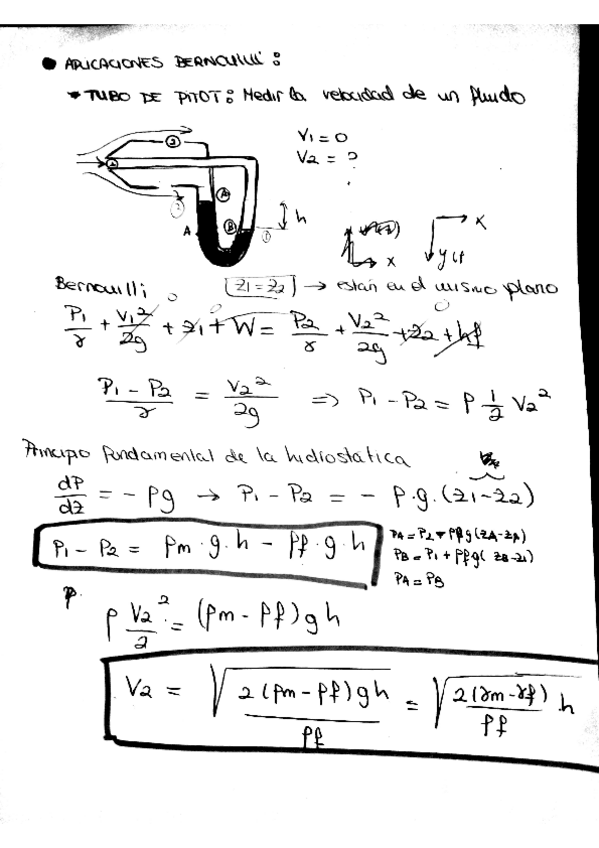 ● APLICACIONES BERNOUILLI :
* TUBO DE PITOT : Medir la velocidad de un fluido
V1 = 0
V2 = ?
h
A
x
x
Bernouilli
z1 = z2 → están en el mismo plano
P1/γ + V1²/2g + z1 + W = P2/γ + V2²/2g + z2 + hf
P1 - P2/γ = V2²/2g => P1 - P2 = ρ 1/2 V2²
Principo fundamental de la hidrostática
dP/dz = - ρg → P1 - P2 = - ρ.g.(z1-z2)
P1 - P2 = ρm · g · h - ρf · g · h
PB = P1 + ρfg( zB-z1)
PA = PB
ρ V2²/2 = (ρm - ρf) g h
V2 = √ 2(ρm - ρf) g h / ρf = √ 2(γm - γf) / ρf . h